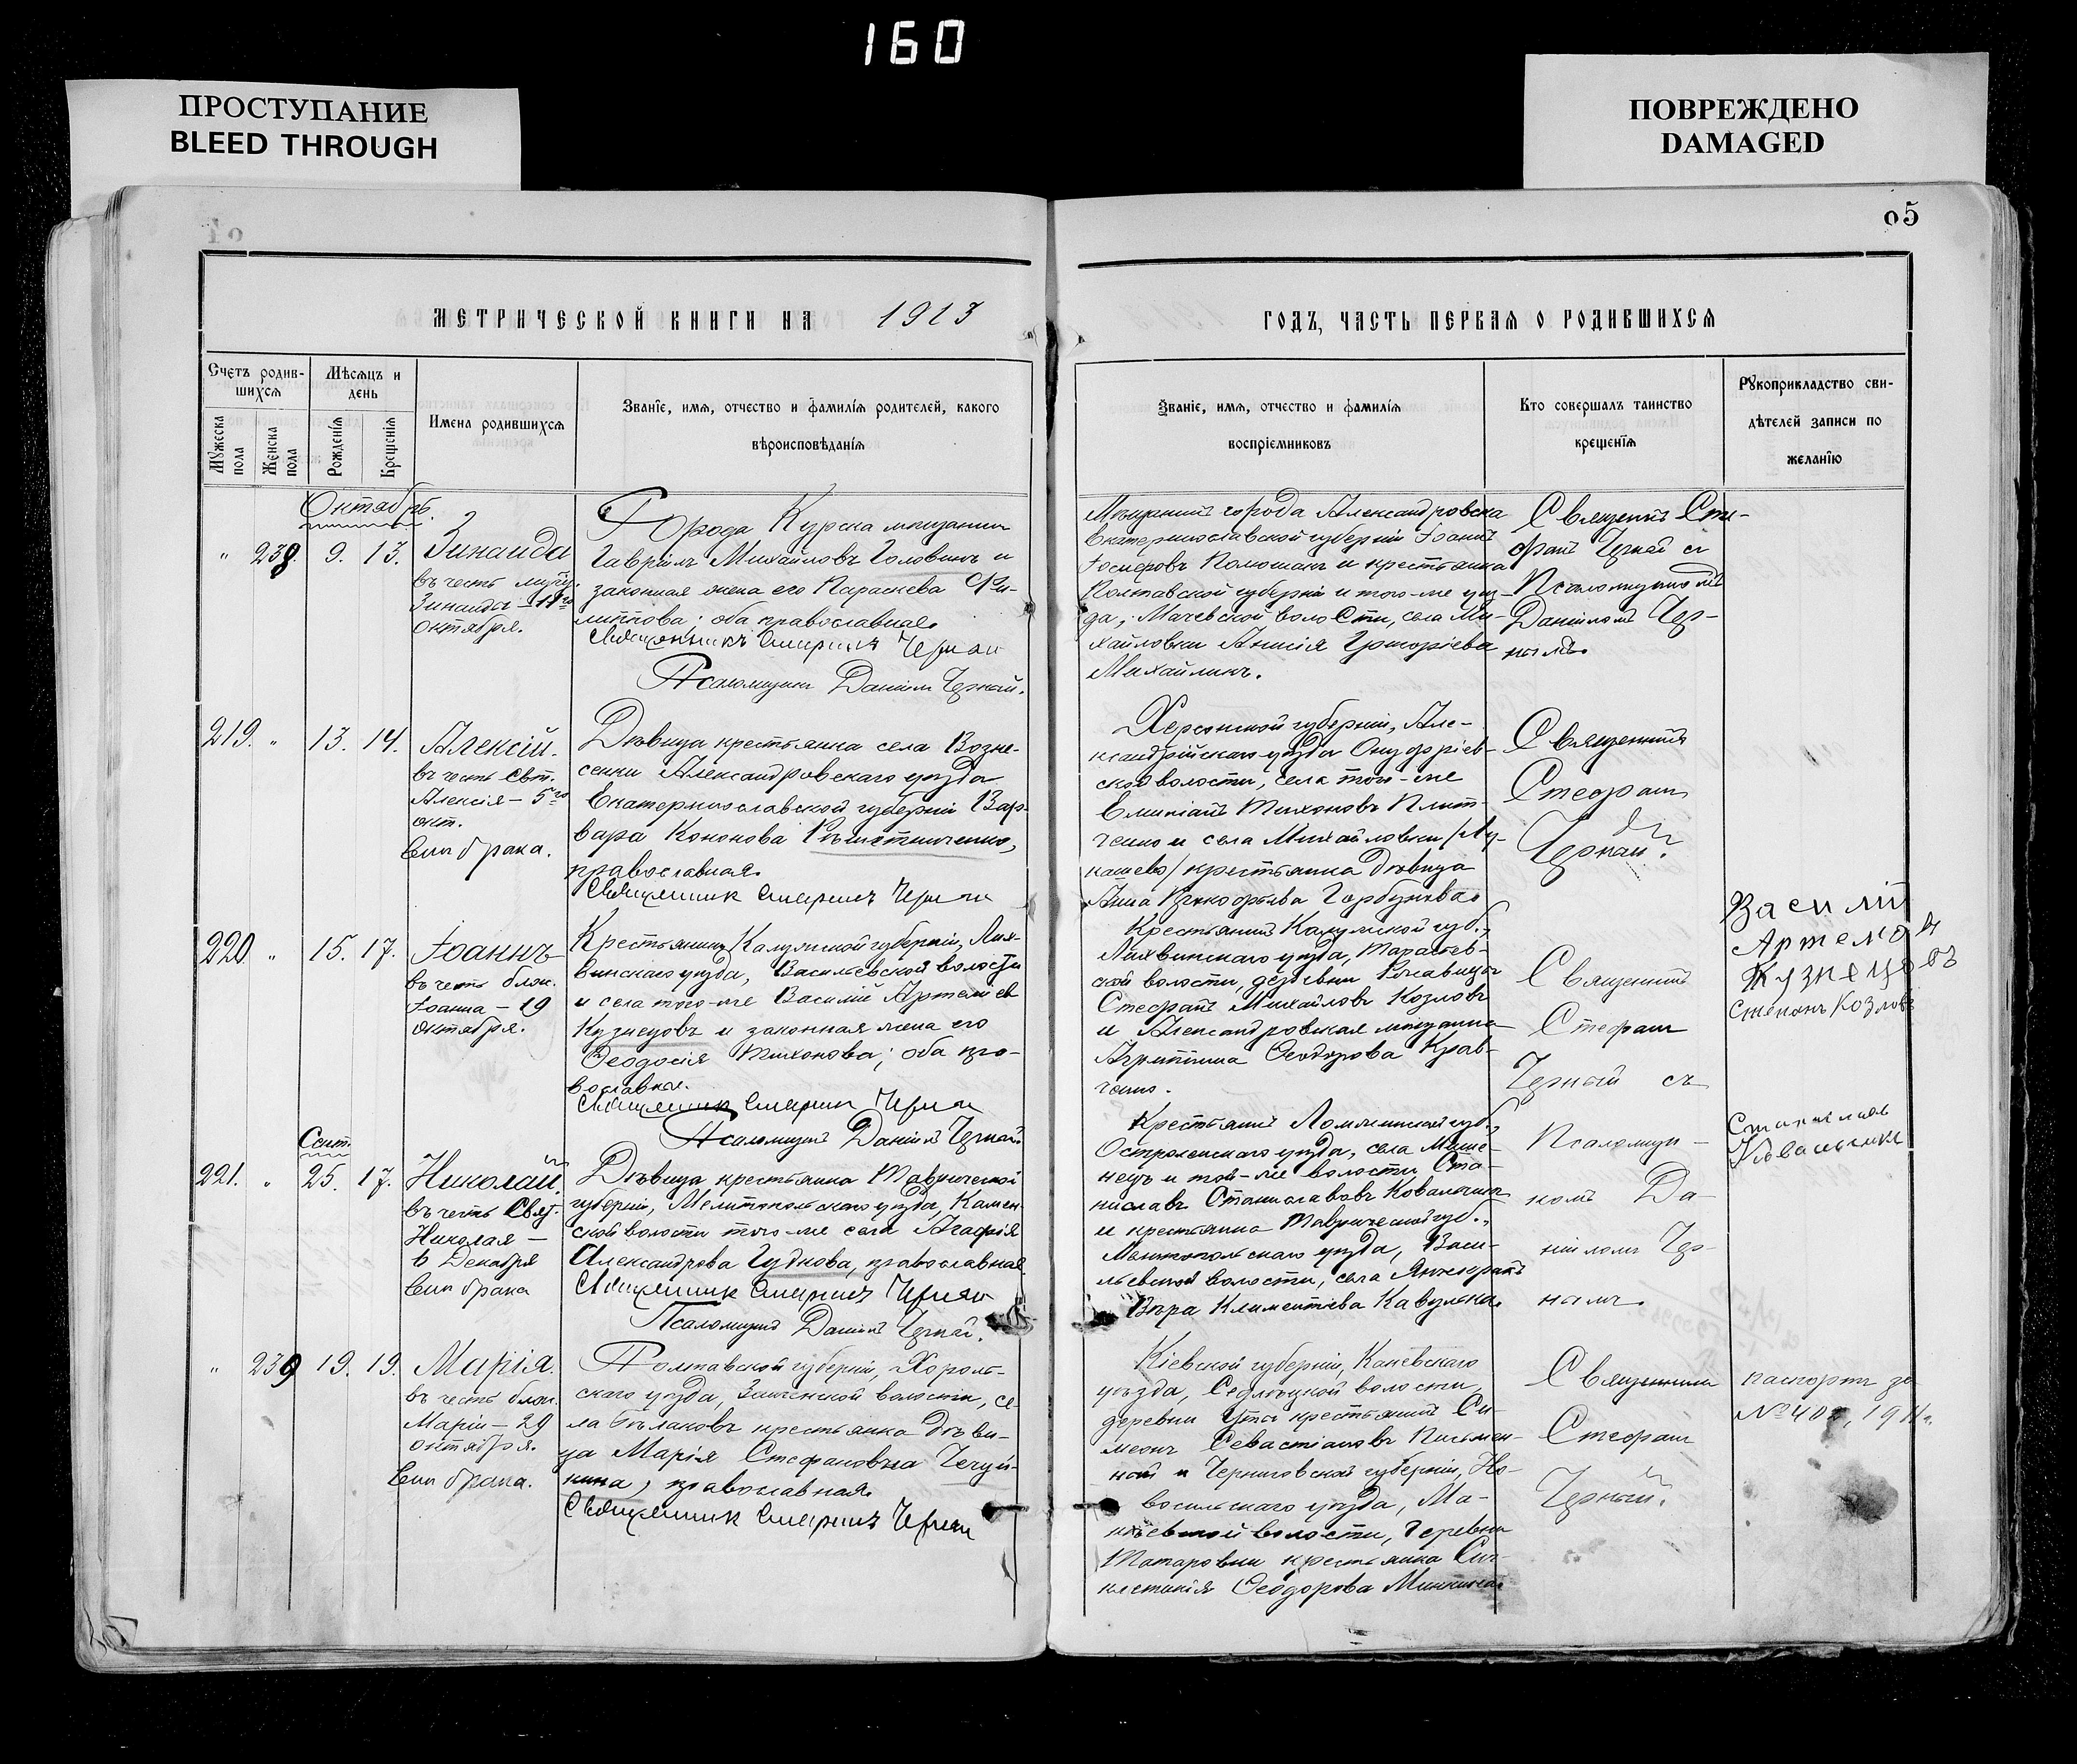 160
ПРОСТУПАНИЕ
BLEED THROUGH
ПОВРЕЖДЕНО
DAMAGED
о5
МЕТРИЧЕСКОЙ КНИГИ НА 1913
ГОДЪ, ЧАСТЬ ПЕРВАЯ О РОДИВШИХСЯ
Счетъ родив-
шихся
Мужеска
пола
Женска
пола
Мѣсяцъ и
день
Рожденія
Крещенія
Имена родившихся
Званіе, имя, отчество и фамилія родителей, какого
вѣроисповѣданія
Званіе, имя, отчество и фамилія
воспріемниковъ
Кто совершалъ таинство
крещенія
Рукоприкладство сви-
дѣтелей записи по
желанію
Октябрь.
" 238. 9. 13.
Зинаида
въ честь
Зинаиды – 11го
октября.
Города Курска мѣщанинъ
Гавріилъ Михайловъ Головинъ и
законная жена его Параскева Фи-
липпова; оба православные.
Священникъ Стефанъ Черный
Псаломщикъ Даніилъ Черный.
Мѣщанинъ города Александровска
Екатеринославской губерніи Іоаннъ
и крестьянка
Полтавской губерніи и того-же уѣз-
да, Мачевской волости, села Ми-
хайловки Анисія Григоріева
Михайликъ.
Священникъ Сте-
фанъ Черный съ
Псаломщикомъ
Даніиломъ Чер-
нымъ.
219. " 13. 14.
Алексій.
въ честь Свят.
Алексія – 5го
окт.
Внѣ брака.
Дѣвица крестьянка села Возне-
сенки Александровскаго уѣзда
Екатеринославской губерніи Вар-
вара Кононова
православная.
Священник Стефанъ Черный
Херсонской губерніи, Але-
ксандрійскаго уѣзда Онуфріев-
ской волости, села того-же
Емиліанъ Тихоновъ Плит-
ченко и села Михайловки /Лу-
кашево/ крестьянка дѣвица
Анна Никифорова Горбунова.
Священникъ
Стефанъ
Черный.
220. " 15. 17.
Іоаннъ
въ честь блаж.
Іоанна – 19
октября.
Крестьянинъ Калужской губерніи, Лих-
винскаго уѣзда, Васильевской волости
и села того-же Василій Артеміев
Кузнецовъ и законная жена его
Ѳеодосія Тихонова; оба пра-
вославные.
Священник Стефан Черный
Псаломщикъ Даніилъ Черный.
Крестьянинъ Калужской губ.,
Лихвинскаго уѣзда,
ской волости, деревни
Стефанъ Михайловъ Козловъ
и Александровская мѣщанка
Агриппина Ѳеодорова Крав-
ченко.
Священникъ
Стефанъ
Черный съ
Василій
Артемов
Кузнецовъ
Степанъ Козловъ
Сент.
221. " 25. 17.
Николай.
въ честь Свят.
Николая –
6 Декабря
Внѣ брака
Дѣвица крестьянка Таврической
губерніи, Мелитопольскаго уѣзда, Камен-
ской волости того-же села Агафія
Александрова Гуднова, православная.
Священник Стефанъ Черный
Псаломщикъ Даніилъ Черный.
Крестьянинъ Ломжинской губ.,
Остроленскаго уѣзда, села
и той-же волости Ста-
ниславъ Станиславовъ Ковальчикъ
и крестьянка Таврической губ.,
Мелитопольскаго уѣзда, Васи-
льевской волости, села Янчекракъ
Вѣра Климентіева Кавулька.
Псаломщи-
комъ Да-
ніиломъ Чер-
нымъ.
Станислав
Ковальчикъ
" 239 19. 19.
Марія.
въ честь блаж.
Маріи – 29
октября.
Внѣ брака.
Полтавской губерніи, Хороль-
скаго уѣзда, волости, се-
ла Бѣлаковъ крестьянка дѣви-
ца Марія Стефановна Чечуй-
кина, православная.
Священник Стефанъ Черный
Кіевской губерніи, Каневскаго
уѣзда, волости,
деревни крестьянинъ Си-
меонъ Севастіановъ Письмен-
ной и Черниговской губерніи, Но-
восильскаго уѣзда, Ма-
волости, деревни
Татаровки крестьянка
Ѳеодорова
Священникъ
Стефанъ
Черный.
паспортъ за
№ 1911 г.